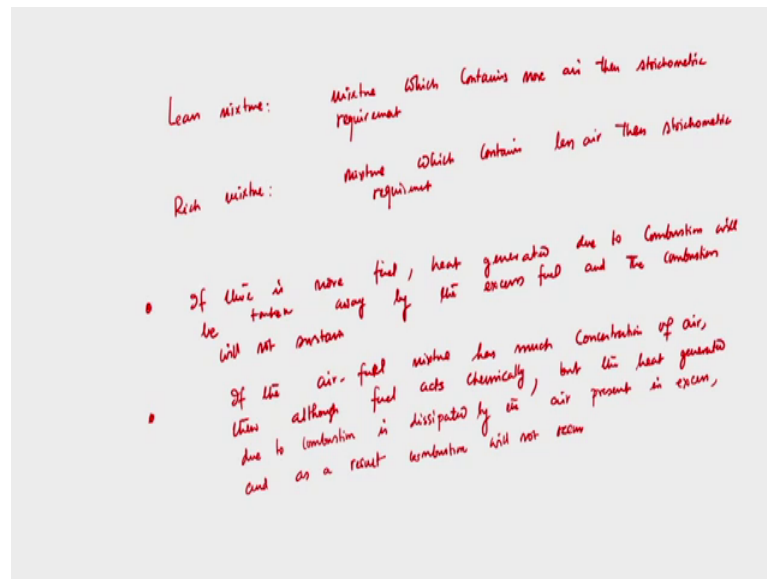 Lean mixture: mixture which contains more air then stoichometric
requirement
Rich mixture: mixture which contain less air then stoichometric
requirement
• If there is more fuel, heat generated due to combustion will
be taken away by the excess fuel and the combustion
will not sustain
• If the air-fuel mixture has much concentration of air,
then although fuel acts chemically, but the heat generated
due to combustion is dissipated by the air present in excess,
and as a result combustion will not occur